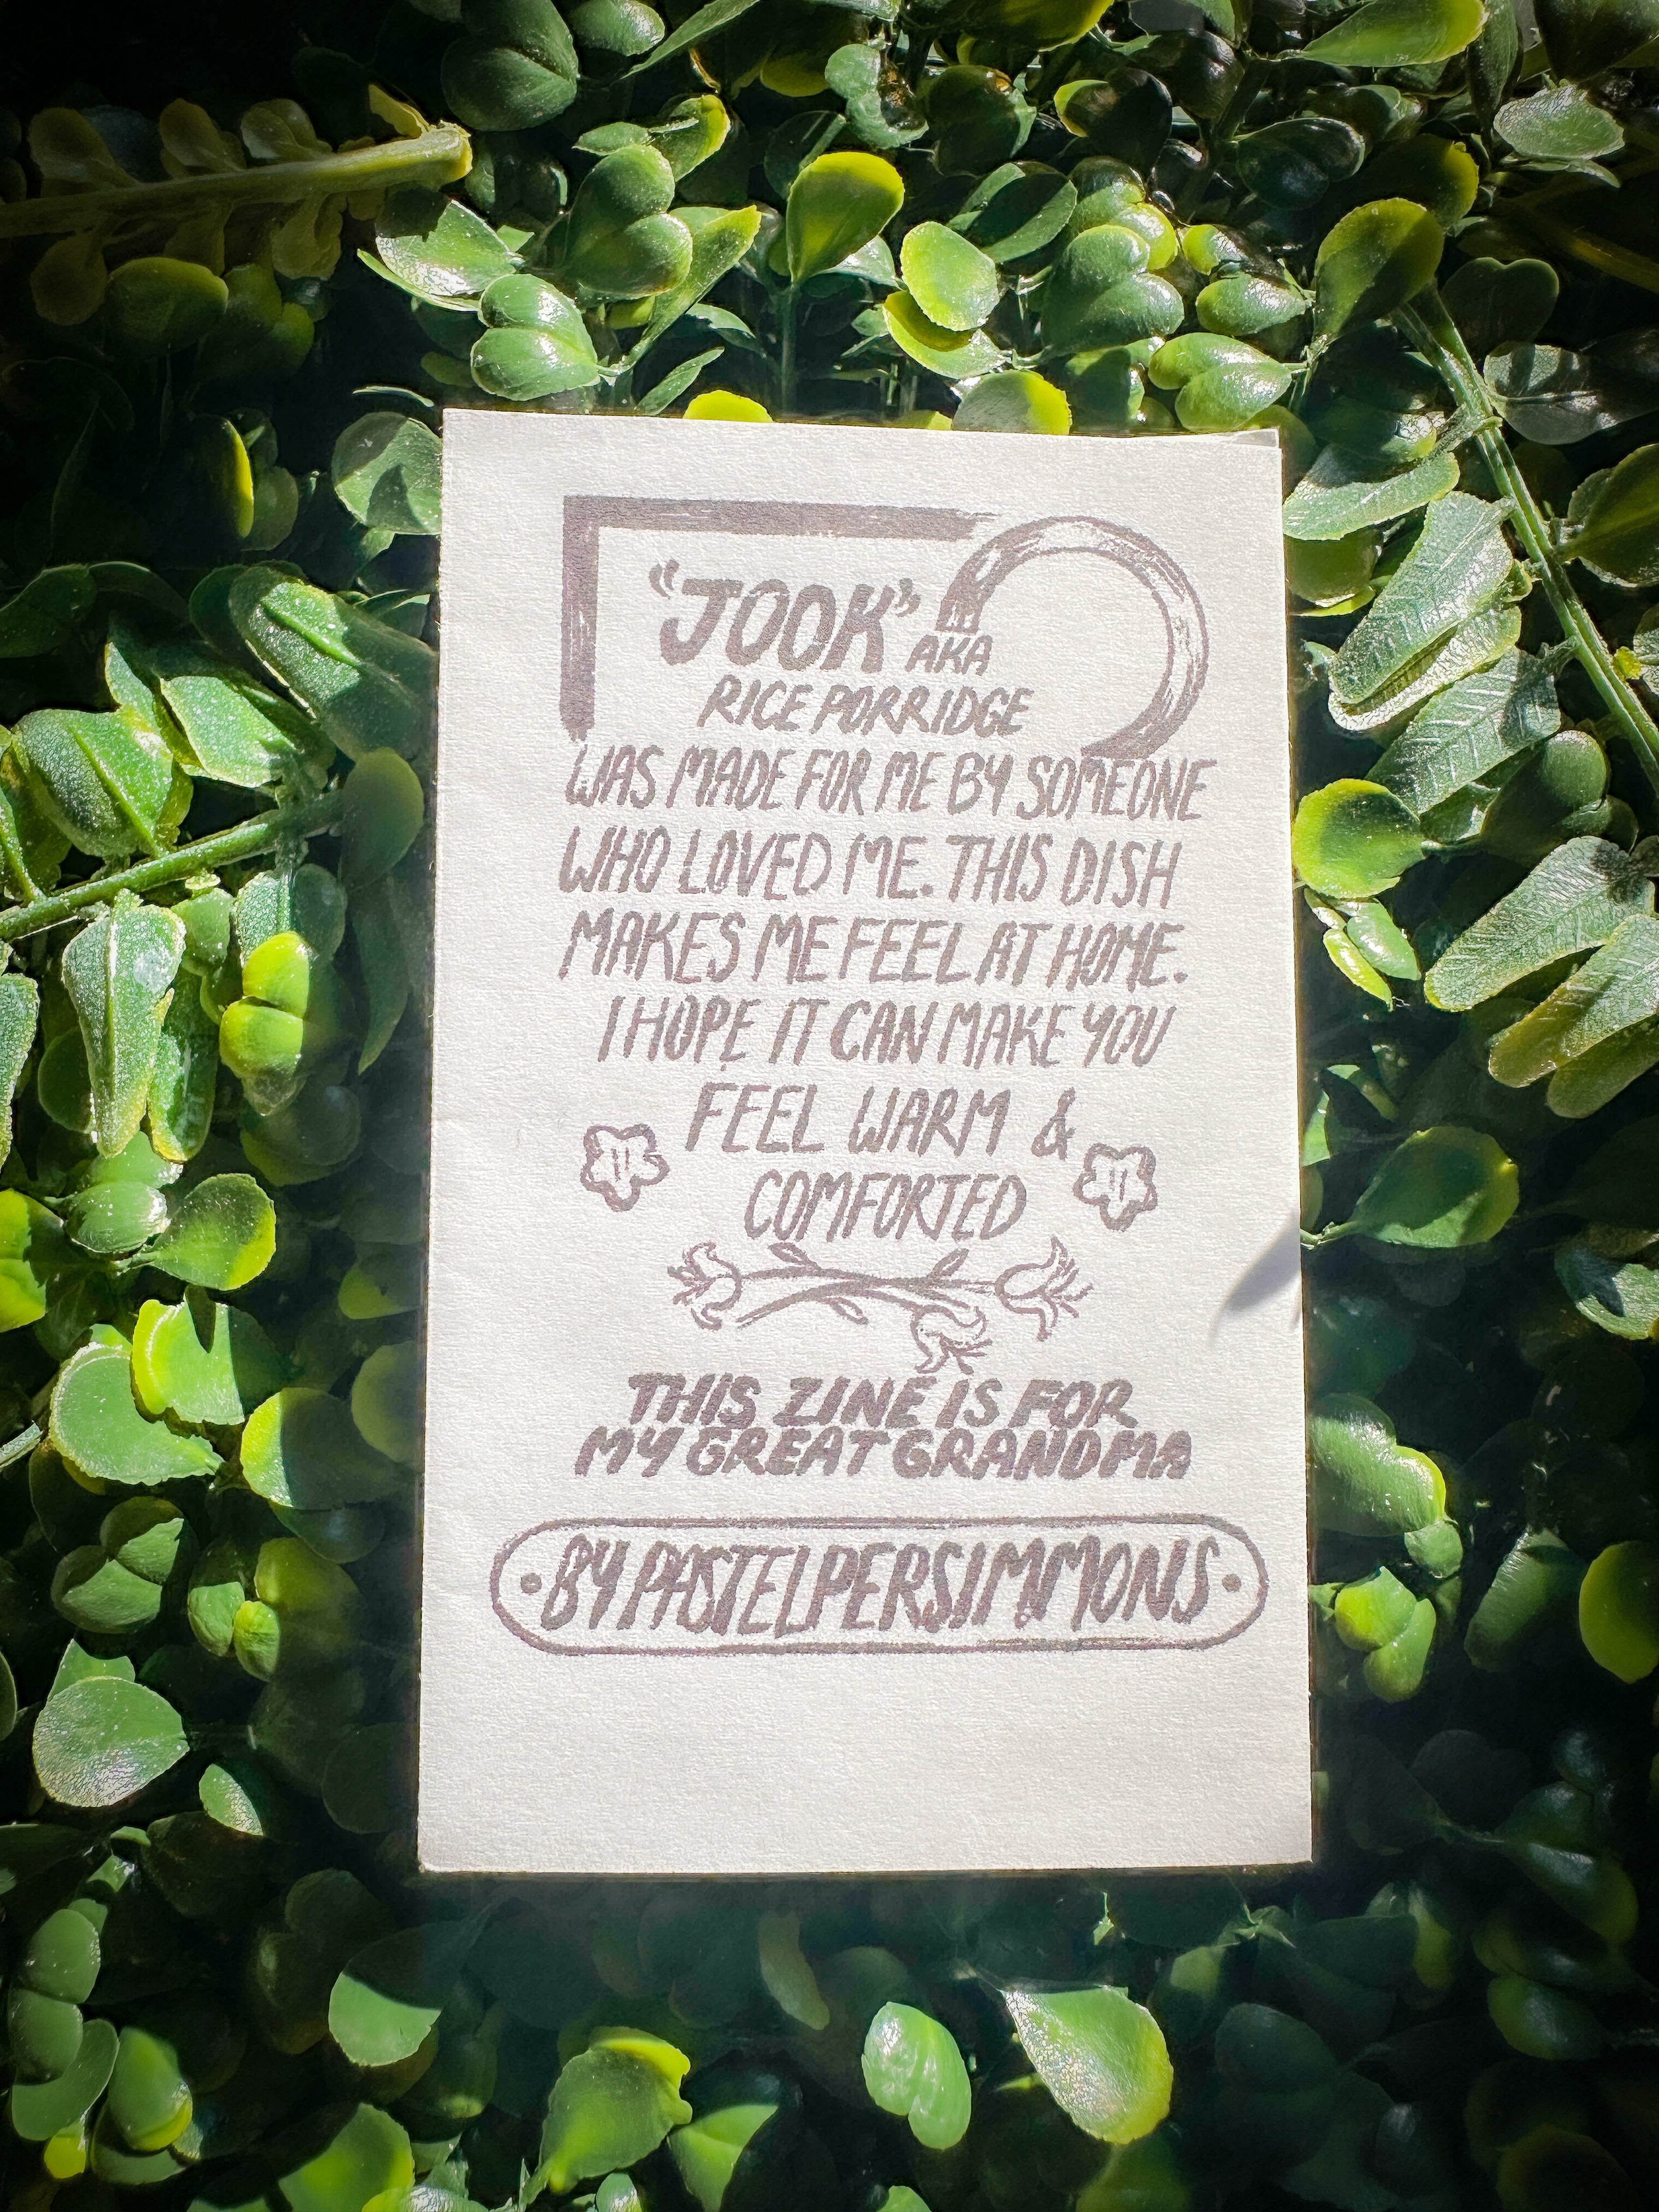 "JOOK" AKA
RICE PORRIDGE
WAS MADE FOR ME BY SOMEONE
WHO LOVED ME. THIS DISH
MAKES ME FEEL AT HOME.
I HOPE IT CAN MAKE YOU
FEEL WARM &
COMFORTED
THIS ZINE IS FOR
MY GREAT GRANDMA
• BY PASTELPERSIMMONS •